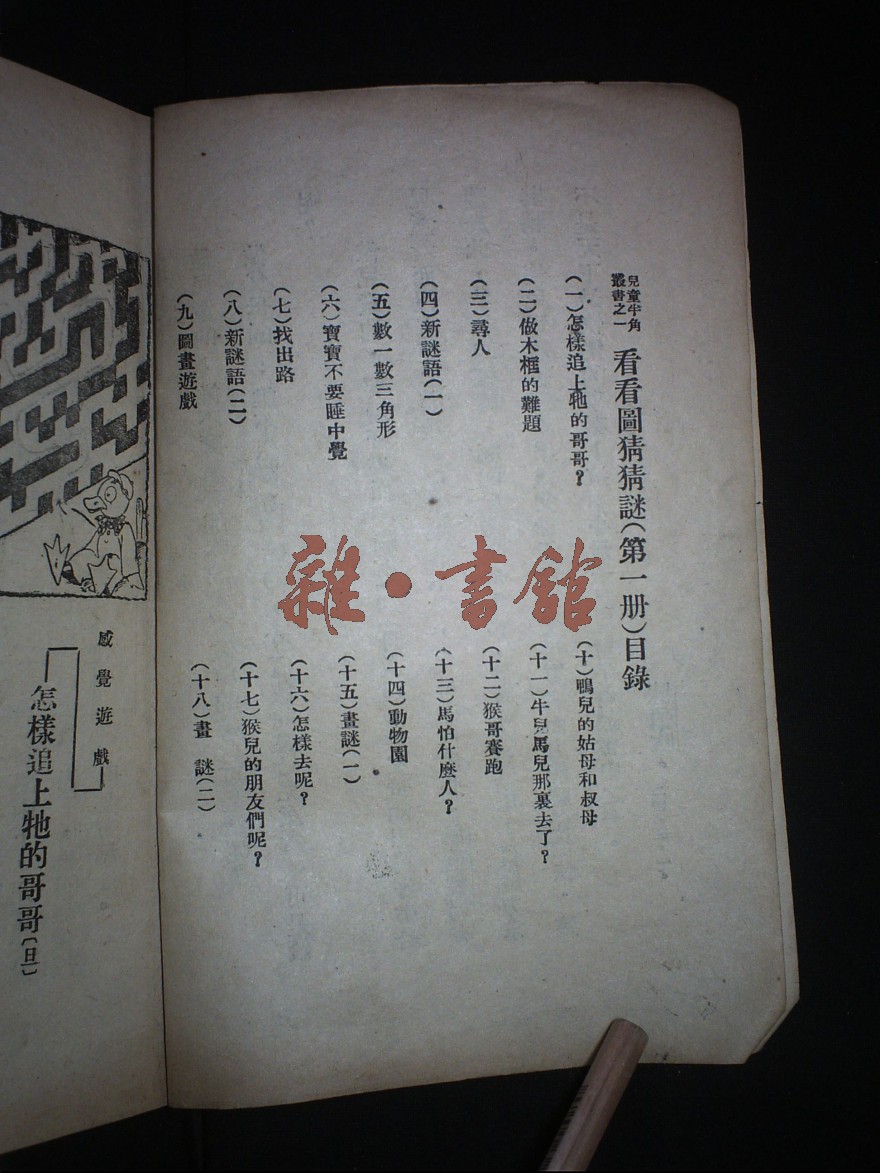 兒童牛角
叢書之一
看看圖猜猜謎(第一册)目錄
(一)怎樣追上牠的哥哥?
(二)做木框的難題
(三)尋人
(四)新謎語(一)
(五)數一數三角形
(六)寶寶不要睡中覺
(七)找出路
(八)新謎語(二)
(九)圖畫遊戲
(十)鴨兒的姑母和叔母
(十一)牛兒馬兒那裏去了?
(十二)猴哥賽跑
(十三)馬怕什麼人?
(十四)動物園
(十五)畫謎(一)
(十六)怎樣去呢?
(十七)猴兒的朋友們呢?
(十八)畫 謎(二)
雜·書館
感覺遊戲
怎樣追上牠的哥哥(旦)